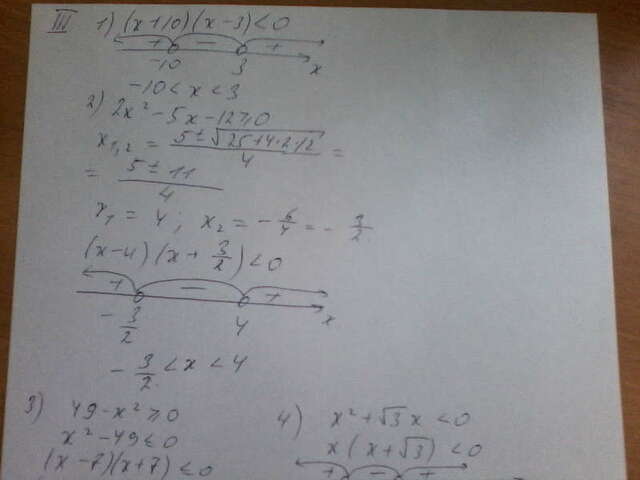 III 1) (x+10)(x-3)<0
+ - +
-10 3 x
-10<x<3
2) 2x² - 5x - 12 ≥ 0
x₁,₂ = (5 ± √(25+4·2·12))/4 =
= (5 ± 11)/4
x₁ = 4; x₂ = -6/4 = -3/2.
(x-4)(x+3/2)<0
+ - +
-3/2 4 x
-3/2<x<4
3) 49-x² ≥ 0
x² - 49 ≤ 0
(x-7)(x+7) ≤ 0
4) x² + √3 x < 0
x(x+√3) < 0
+ - +